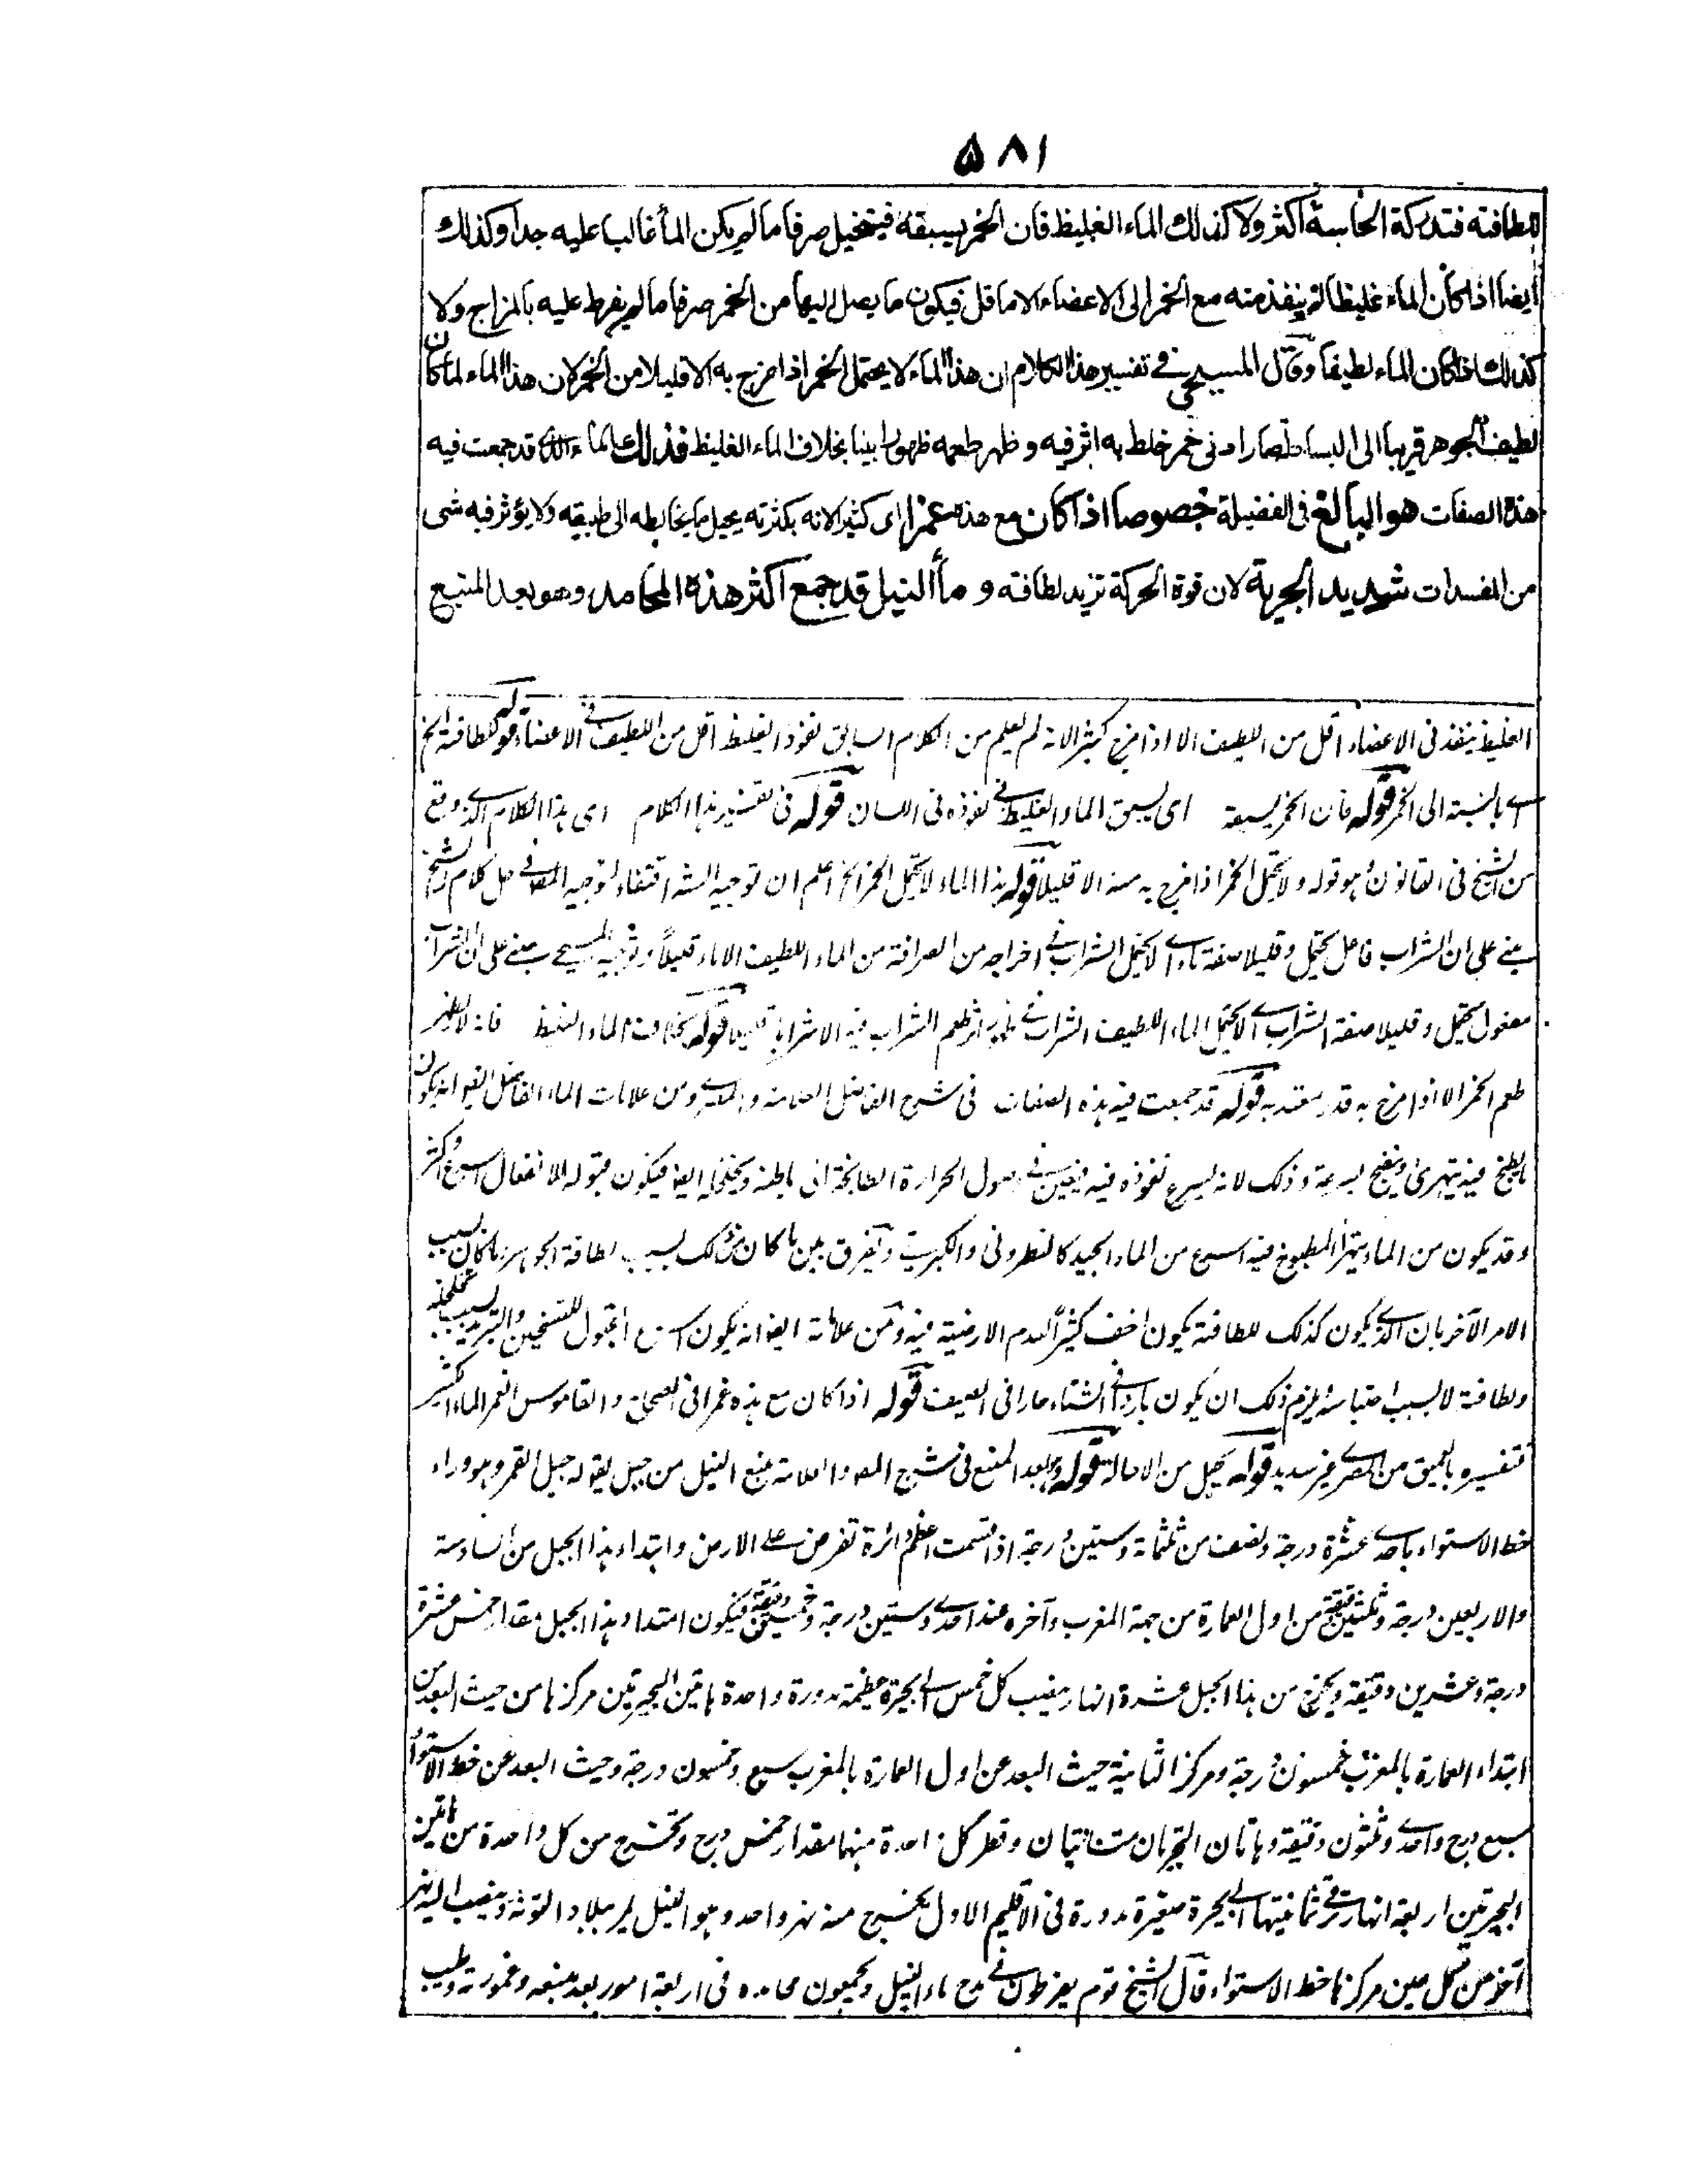 ۵۸۱
للطافته فتدركة الحاسة اكثر ولا كذلك الماء الغليظ فان الخمر يسبقه فيتخيل صرفا ما لم يكن الماء غالبا عليه جدا وكذلك
ايضا اذا كان الماء غليظا لم ينفذ منه مع الخمر الى الاعضاء الا ما قل فيكون ما يصل اليها من الخمر صرفا ما لم يفرط عليه بالمزاج ولا
كذلك اذا كان الماء لطيفا وقال المسيحى فى تفسير هذا الكلام ان هذا الماء لا يحتمل الخمر اذا مزج به الا قليلا من الخمر لان هذا الماء لما كان
لطيف الجوهر قريبا الى البساطة صار ادنى خمر خلط به اثر فيه وظهر طعمه ظهورا بينا بخلاف الماء الغليظ فذلك الماء الذى قد جمعت فيه
هذه الصفات هو البالغ فى الفضيلة خصوصا اذا كان مع هذه غمرا اى كثيرا لانه بكثرته يحيل ما يخالطه الى طبيعته ولا يؤثر فيه شى
من المفسدات شديد الجرية لان قوة الحركة تزيد لطافته و ماء النيل قد جمع اكثر هذه المحامد وهو بعد المنبع
الغليظ ينفذ فى الاعضاء اقل من اللطيف الا اذا مزج كثيرا لانه لم يعلم من الكلام السابق نفوذ الغليظ اقل من اللطيف فى الاعضاء قوله للطافته الخ
اى بالنسبة الى الخمر قوله فان الخمر يسبقه اى يسبق الماء الغليظ فى نفوذه فى اللسان قوله فى تفسير هذا الكلام اى هذا الكلام الذى وقع
من الشيخ فى القانون وهو قوله ولا يحتمل الخمر اذا مزج به منه الا قليلا قوله هذا الماء لا يحتمل الخمر الخ اعلم ان توجيه الشه اقتفاء لتوجيه المصه فى حل كلام الشيخ
مبنى على ان الشراب فاعل يحتمل وقليلا صفة ماء اى لا يحتمل الشراب فى اخراجه من الصرافة من الماء اللطيف الا ماء قليلاً وتوجيه المسيحى مبنى على ان الشراب
مفعول يحتمل وقليلا صفة الشراب اى لا يحتمل الماء اللطيف الشراب فى ظهور اثر طعم الشراب فيه الا شرابا قليلا قوله بخلاف الماء الغليظ فانه لا يظهر
طعم الخمر الا اذا مزج به قدر معتد به قوله قد جمعت فيه هذه الصفات فى شرح الفاضل العلامة ومن علامات الماء الفاضل ايضا انه يكون
ما يطبخ فيه يتهرى وينضج بسرعة وذلك لانه يسرع نفوذه فيه فيعين فى وصول الحرارة الطابخة الى باطنه ويخلخله ايضا فيكون قبوله للانفعال اسرع واكثر
وقد يكون من الماء يتهرأ المطبوخ فيه اسرع من الماء الجيد كالنطرونى والكبريتى ويفرق بين ما كان من ذلك بسبب لطافة الجوهر وما كان بسبب
الامر الآخر بان الذى يكون كذلك للطافته يكون اخف كثيراً لعدم الارضية فيه ومن علاماته ايضا انه يكون اسرع القبول للتسخين والتبريد بسبب تخلخله
ولطافته لا بسبب احتباسه ويلزم ذلك ان يكون باردا فى الشتاء حارا فى الصيف قوله اذا كان مع هذه غمرا فى الصحاح والقاموس الغمر الماء الكثير
فتفسيره بالعميق من المصرى غير سديد قوله يحيل من الاحالة قوله وهو بعد المنبع فى شرح المصه والعلامة منبع النيل من جبل يقال له جبل القمر وهو وراء
خط الاستواء باحدى عشرة درجة ونصف من ثلثمائة وستين درجة اذا قسمت اعظم دائرة تفرض على الارض وابتداء هذا الجبل من السادسة
والاربعين درجة وثلثين دقيقة من اول العمارة من جهة المغرب وآخره عند احدى وستين درجة وخمسين دقيقة فيكون امتداد هذا الجبل مقدار خمس عشرة
درجة وعشرين دقيقة ويخرج من هذا الجبل عشرة انهار يصب كل خمس الى بحيرة عظيمة مدورة واحدة هاتين البحيرتين مركزها من حيث البعد من
ابتداء العمارة بالمغرب خمسون درجة ومركز الثانية حيث البعد عن اول العمارة بالمغرب سبع وخمسون درجة وحيث البعد عن خط الاستواء
سبع درج واحدى وثلثون دقيقة وهاتان البحيرتان متساويتان وقطر كل واحدة منهما مقدار خمس درج وتخرج من كل واحدة من هاتين
البحيرتين اربعة انهار ترمى ثمانيتها الى بحيرة صغيرة مدورة فى الاقليم الاول يخرج منه نهر واحد وهو النيل يمر ببلاد النوبة ويصب اليه نهر
آخر من كل عين مركزها خط الاستواء قال الشيخ قوم يفرطون فى مدح ماء النيل ويجمعون محامده فى اربعة امور بعد منبعه وغمورته وطيب